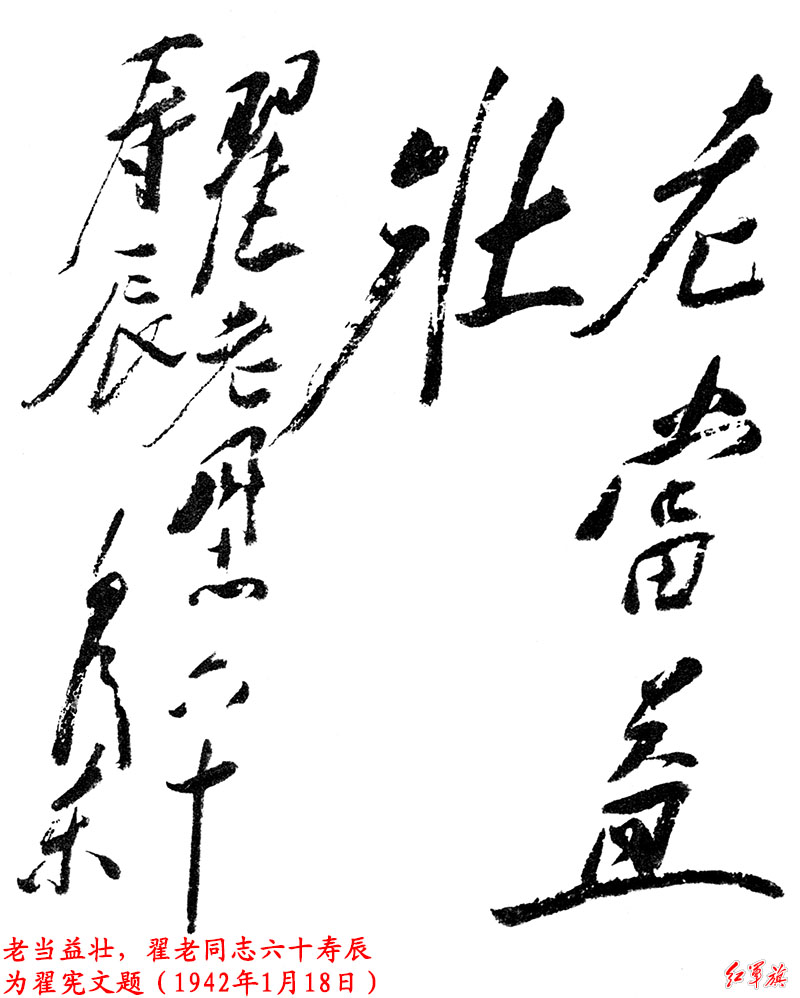 老當益
壮
翟老同志六十
寿辰
毛泽东
老当益壮，翟老同志六十寿辰
为翟宪文题（1942年1月18日）
红军旗